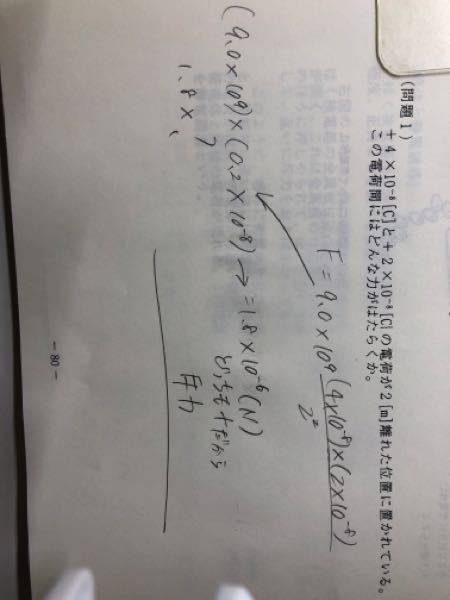 (問題1)
+4×10⁻⁸[C]と+2×10⁻⁸[C]の電荷が2[m]離れた位置に置かれている。
この電荷間にはどんな力がはたらくか。
F=9.0×10⁹ (4×10⁻⁸)×(2×10⁻⁸)
2²
(9.0×10⁹)×(0.2×10⁻⁸)→=1.8×10⁻⁶(N)
1.8×、
どっちも+だから
斥力
－80－